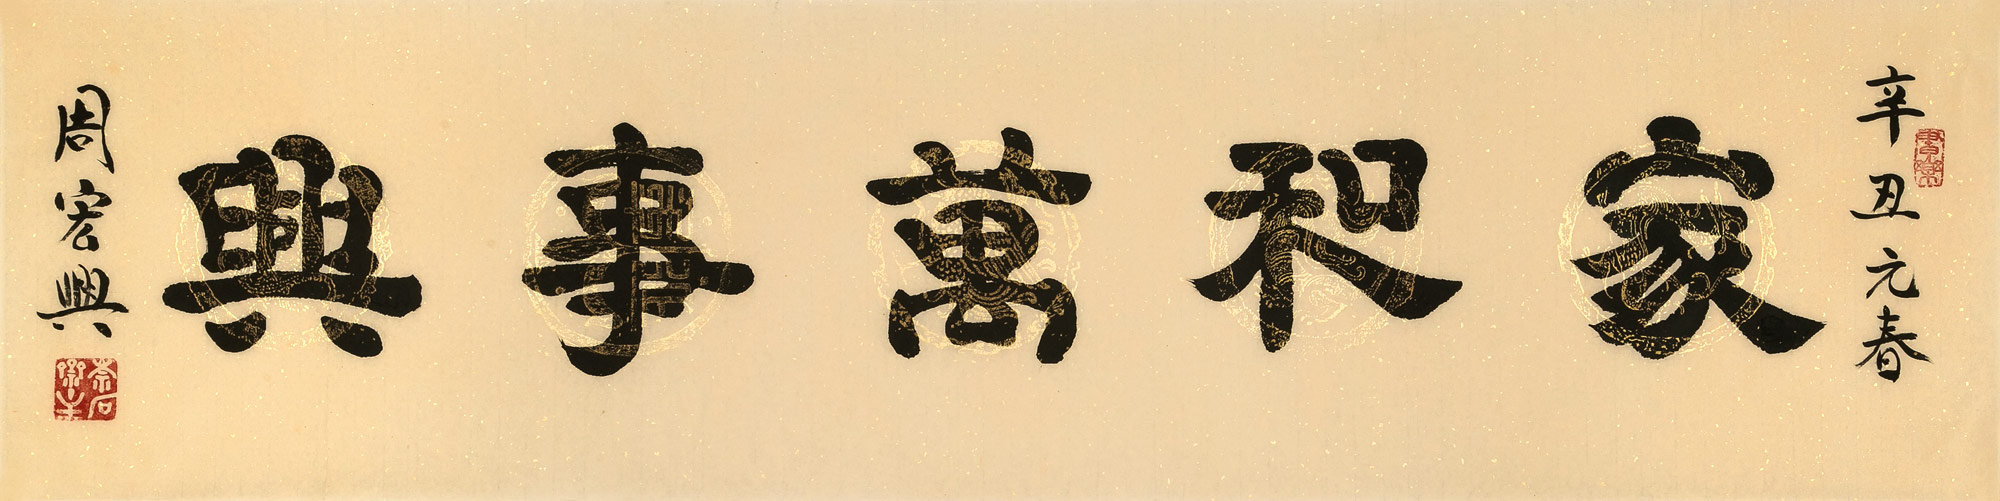 辛丑元春
家和萬事興
周宏興